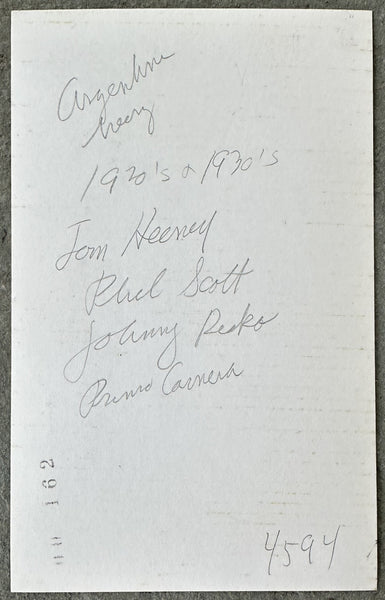 Argentine
heavy
1920's & 1930's
Tom Heeney
Phil Scott
Johnny Risko
Primo Carnera
162
4594